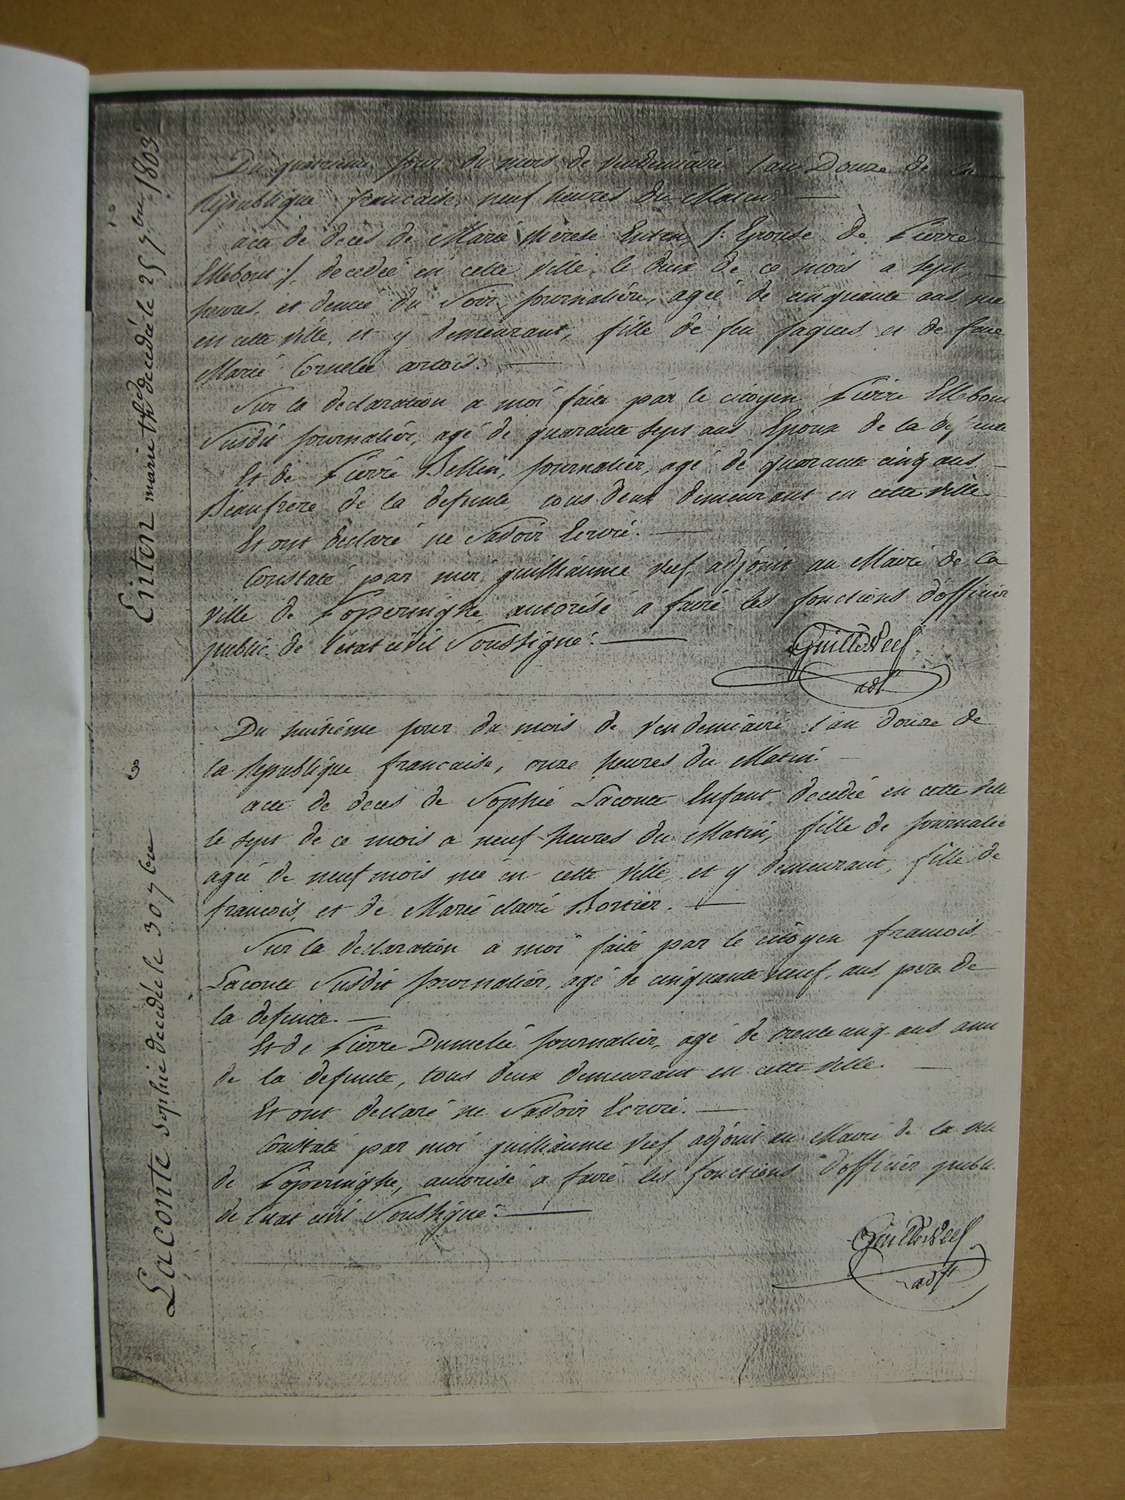 Eiten marie thé decedée le 25 7bre 1803
Du quatrieme jour du mois de vendemiaire l'an Douze de la
Republique française, neuf heures du Matin
acte de deces de Marie therese Eiten /: Epouse de Pierre
Ellebout :/ decedée en cette ville le deux de ce mois a sept
heures et demie du Soir, journaliere, agée de cinquante ans née
en cette ville, et y demeurant, fille de feu jaques et de feue
Marie Cornelie artois.
Sur la declaration a moi faite par le citoyen Pierre Ellebout
Susdit journalier, agé de quarante sept ans Epoux de la defunte
Et de Pierre Bellen, journalier, agé de quarante cinq ans
Beaufrere de la defunte tous deux demeurant en cette ville
Et ont declaré ne Savoir Ecrire.
Constaté par moi guilliaume Vief adjoint au Maire de la
ville de Poperinghe autorisé a faire les fonctions d'officier
public de l'état civil Soussigné.
Guille Vief
adjt
3
Laconte Sophie decedée le 30 7bre
Du huitiéme jour du mois de Vendemiaire l'an douze de
la Republique francaise, onze heures du Matin
acte de deces de Sophie Laconte Enfant decedée en cette ville
le sept de ce mois a neuf heures du Matin, fille de journalier
agée de neuf mois née en cette ville et y demeurant, fille de
francois et de Marie claire Bortier.
Sur la declaration a moi faite par le citoyen francois
Laconte Susdit journalier, agé de cinquante neuf ans pere de
la defunte.
Et de Pierre Dumelie journalier, agé de trente cinq ans ami
de la defunte, tous deux demeurant en cette ville.
Et ont declaré ne Savoir Ecrire.
Constaté par moi guilliaume Vief adjoint au Maire de la ville
de Poperinghe, autorisé a faire les fonctions d'officier public
de l'etat civil Soussigné.
Guille Vief
adjt